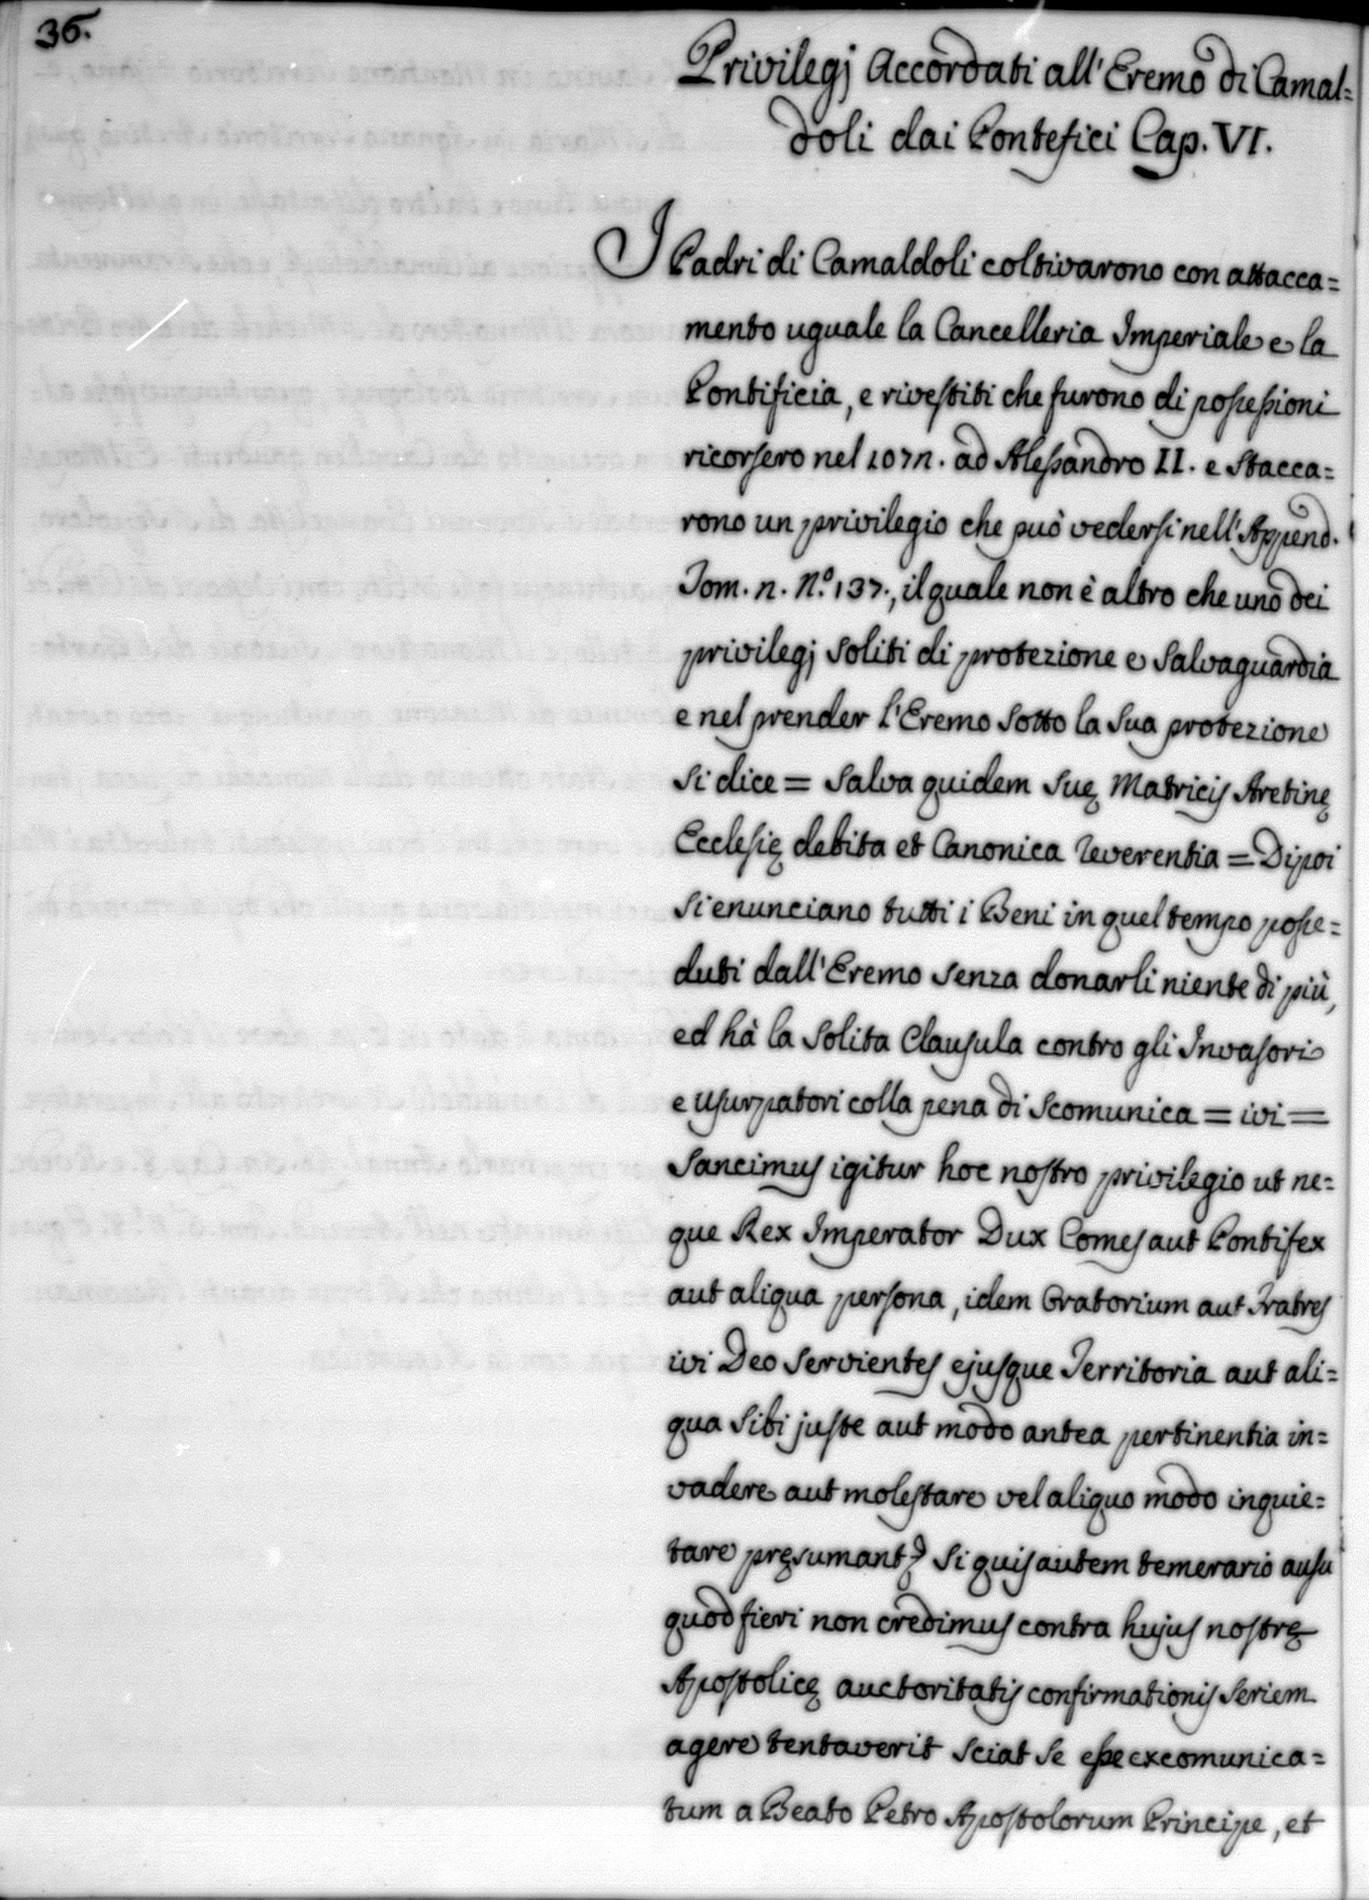 36.
Privilegj Accordati all'Eremo di Camal=
doli dai Pontefici Cap. VI.
I Padri di Camaldoli coltivarono con attacca=
mento uguale la Cancelleria Imperiale e la
Pontificia, e rivestiti che furono di possessioni
ricorsero nel 1072. ad Alessandro II. e stacca=
rono un privilegio che può vedersi nell'Append.
Tom. 2. N.º 137., il quale non è altro che uno dei
privilegj soliti di protezione e salvaguardia
e nel prender l'Eremo sotto la sua protezione
si dice = salva quidem suę Matricis Aretinę
Ecclesię debita et Canonica reverentia = Dipoi
si enunciano tutti i Beni in quel tempo posse=
duti dall'Eremo senza donarli niente di più,
ed hà la solita Clausula contro gli Invasori
e usurpatori colla pena di scomunica = ivi =
Sancimus igitur hoc nostro privilegio ut ne=
que Rex Imperator Dux Comes aut Pontifex
aut aliqua persona, idem Oratorium aut Fratres
ivi Deo servientes ejusque Territoria aut ali=
qua sibi juste aut modo antea pertinentia in=
vadere aut molestare vel aliquo modo inquie=
tare pręsumant? Si quis autem temerario ausu
quod fieri non credimus contra hujus nostrę
Apostolicę auctoritatis confirmationis seriem
agere tentaverit sciat se esse excomunica=
tum a Beato Petro Apostolorum Principe, et